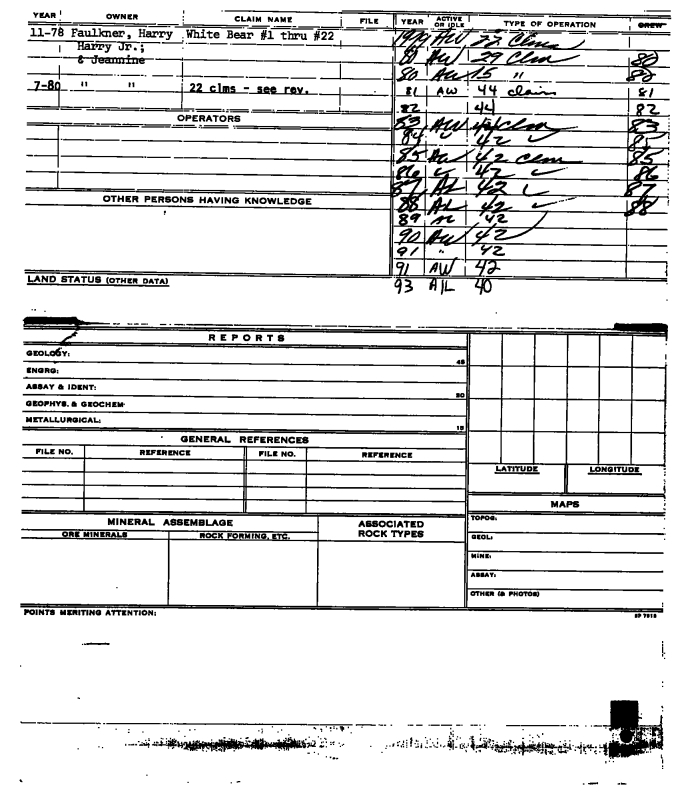 YEAR OWNER CLAIM NAME FILE YEAR ACTIVE OR IDLE TYPE OF OPERATION CREW
11-78 Faulkner, Harry White Bear #1 thru #22
Harry Jr.;
& Jeannine
7-80 " " 22 clms - see rev.
1979 AW 22 Clms
80 AW 29 Clm 80
80 AW 15 "
81 AW 44 claim 81
82 44 82
83 AW Clm 83
84 " 42 ✓
85 AW 42 Clm 85
86 ✓ 42 ✓ 86
87 AL 42 87
88 AL 42 ✓ 88
89 42
90 AW 42
91 " 42
91 AW 42
93 A/L 40
OPERATORS
OTHER PERSONS HAVING KNOWLEDGE
LAND STATUS (OTHER DATA)
REPORTS
GEOLOGY: 45
ENGRG:
ASSAY & IDENT: 30
GEOPHYS. & GEOCHEM
METALLURGICAL: 15
GENERAL REFERENCES
FILE NO. REFERENCE FILE NO. REFERENCE
LATITUDE LONGITUDE
MAPS
TOPOG:
GEOL:
MINE:
ASSAY:
OTHER (& PHOTOS)
MINERAL ASSEMBLAGE ASSOCIATED ROCK TYPES
ORE MINERALS ROCK FORMING, ETC.
POINTS MERITING ATTENTION: SP 7515